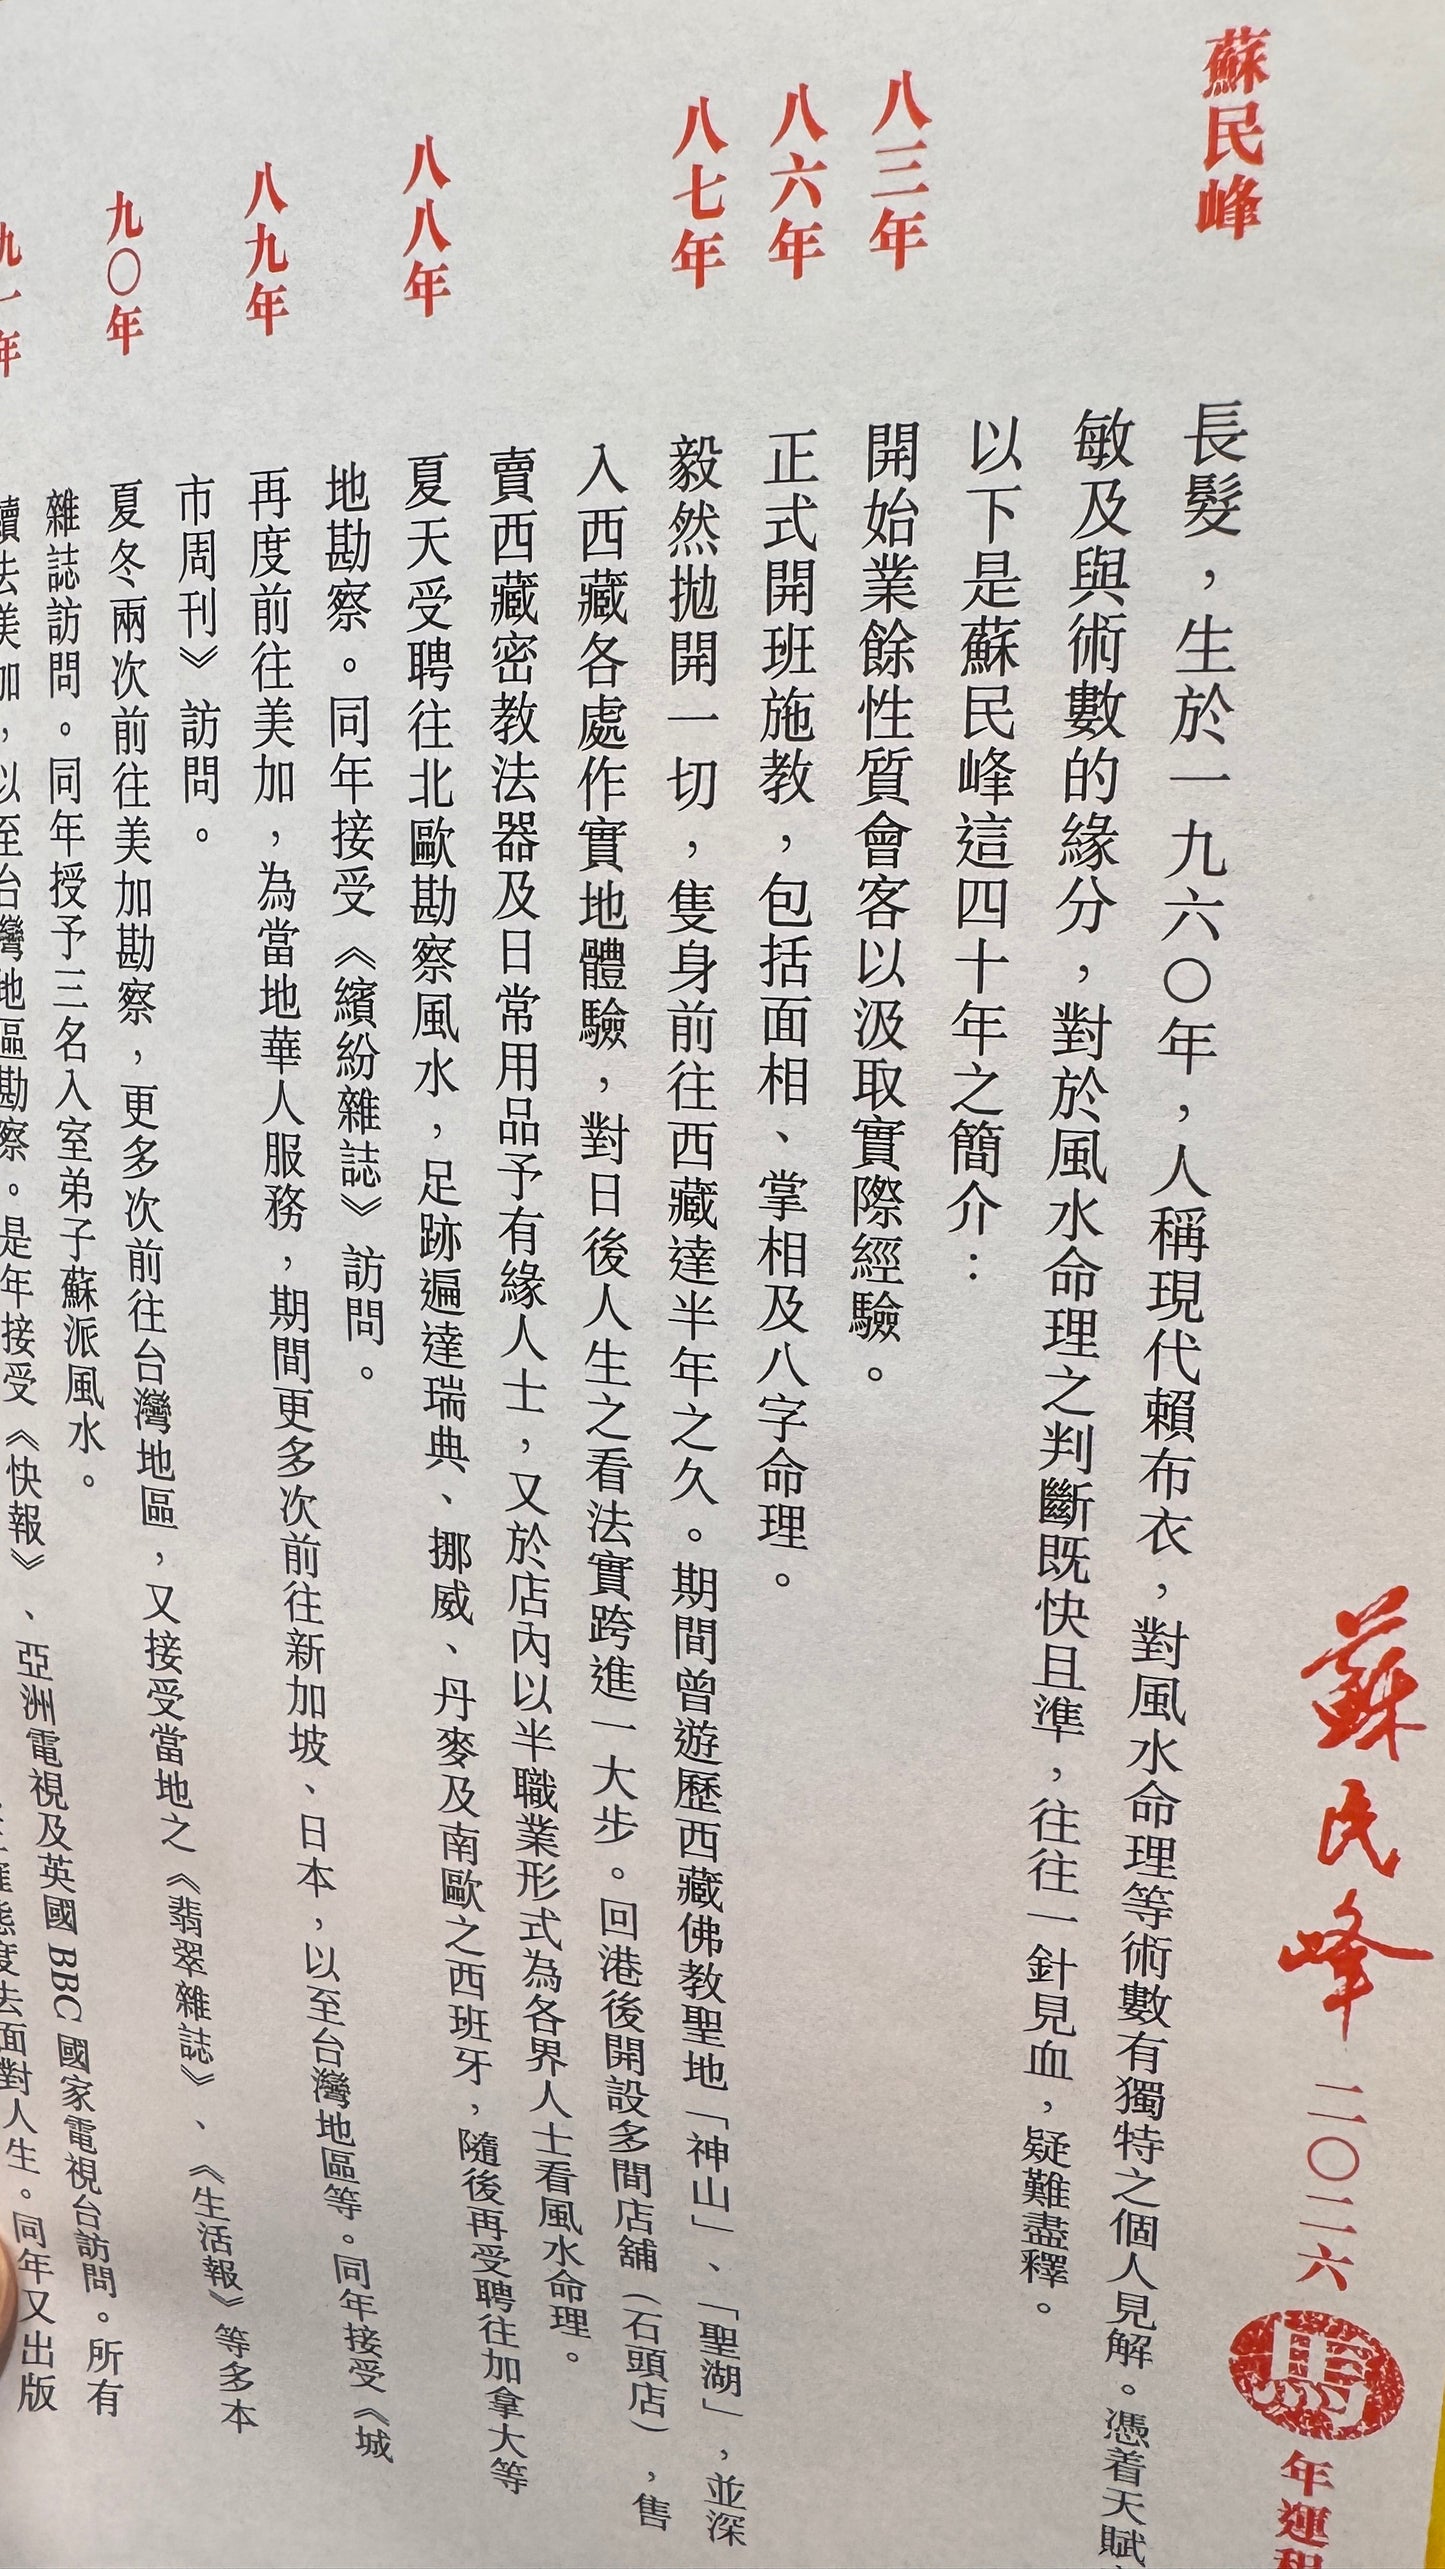 蘇民峰 二〇二六 馬 年運程
蘇民峰
長髮，生於一九六〇年，人稱現代賴布衣，對風水命理等術數有獨特之個人見解。憑着天賦
敏及與術數的緣分，對於風水命理之判斷既快且準，往往一針見血，疑難盡釋。
以下是蘇民峰這四十年之簡介：
八三年
開始業餘性質會客以汲取實際經驗。
八六年
正式開班施教，包括面相、掌相及八字命理。
八七年
毅然拋開一切，隻身前往西藏達半年之久。期間曾遊歷西藏佛教聖地「神山」、「聖湖」，並深
入西藏各處作實地體驗，對日後人生之看法實跨進一大步。回港後開設多間店舖（石頭店），售
賣西藏密教法器及日常用品予有緣人士，又於店內以半職業形式為各界人士看風水命理。
八八年
夏天受聘往北歐勘察風水，足跡遍達瑞典、挪威、丹麥及南歐之西班牙，隨後再受聘往加拿大等
地勘察。同年接受《繽紛雜誌》訪問。
八九年
再度前往美加，為當地華人服務，期間更多次前往新加坡、日本，以至台灣地區等。同年接受《城
市周刊》訪問。
九〇年
夏冬兩次前往美加勘察，更多次前往台灣地區，又接受當地之《翡翠雜誌》、《生活報》等多本
雜誌訪問。同年授予三名入室弟子蘇派風水。
九一年
續去美加，以至台灣地區勘察。是年接受《快報》、亞洲電視及英國BBC國家電視台訪問。所有
態度去面對人生。同年又出版